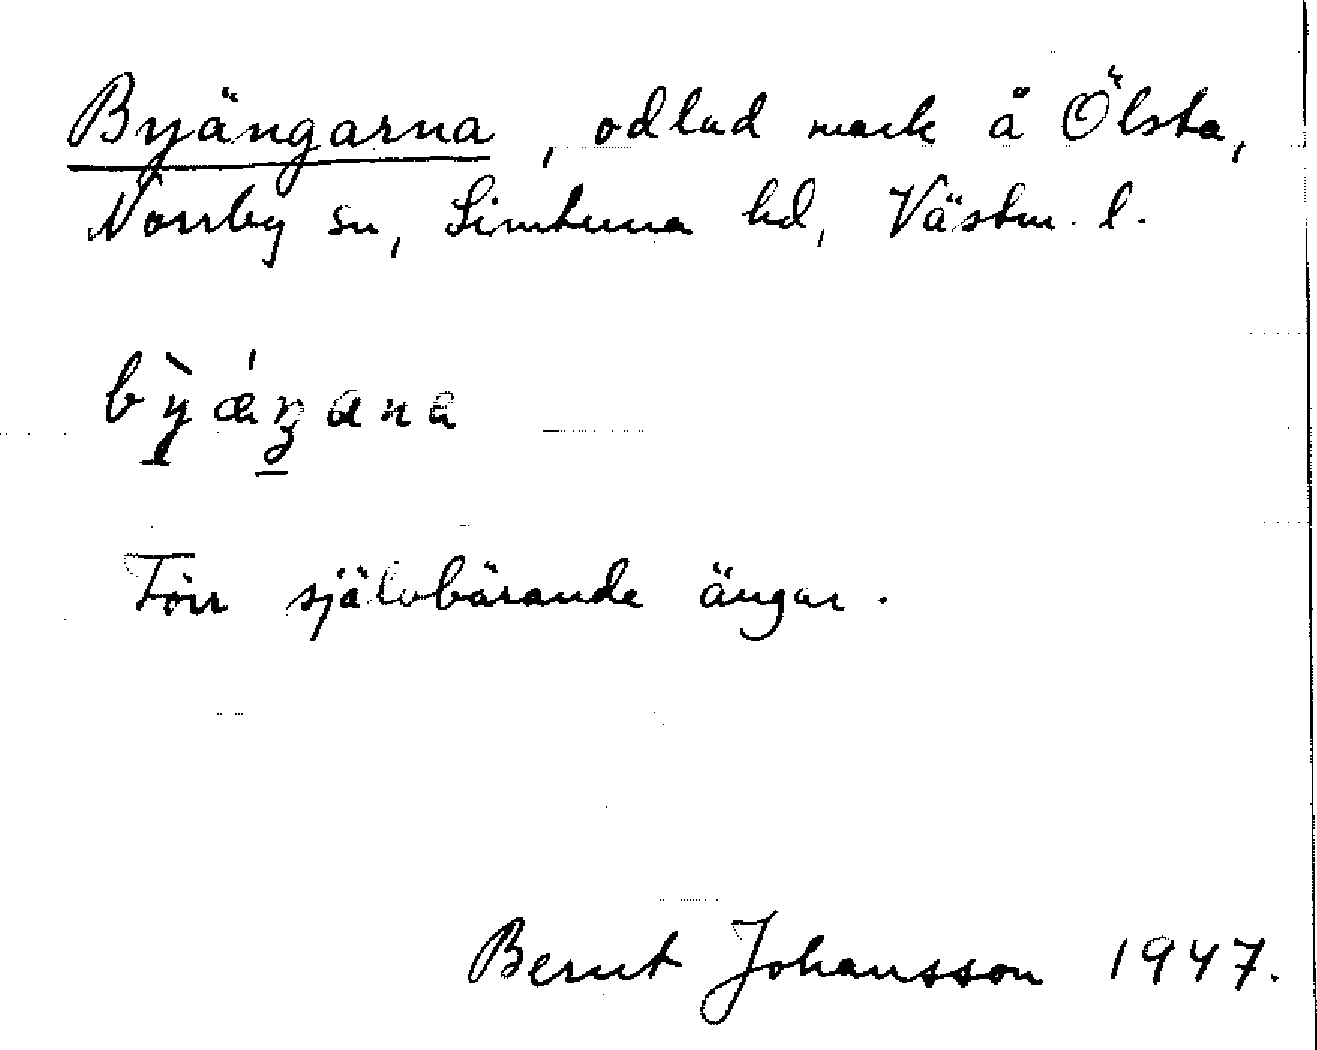 Byängarna, odlad mark å Ölsta,
Norrby sn, Simtuna hd, Västm. l.
bỳǽŋana
Förr självbärande ängar.
Bernt Johansson 1947.